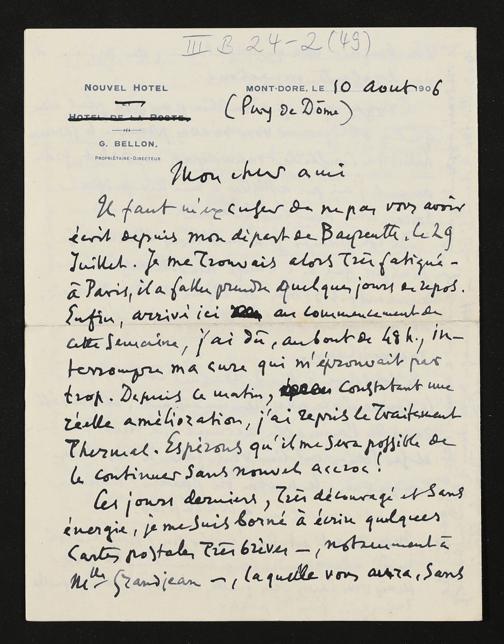 III B 24-2 (49)
NOUVEL HOTEL
HOTEL DE LA POSTE
G. BELLON,
PROPRIÉTAIRE-DIRECTEUR
MONT-DORE, LE 10 Aout 1906
(Puy de Dôme)
Mon cher ami
Il faut m'excuser de ne pas vous avoir
écrit depuis mon départ de Bayreuth, le 29
Juillet. Je me trouvais alors très fatigué -
à Paris, il a fallu prendre quelques jours de repos.
Enfin, arrivé ici au commencement de
cette semaine, j'ai dû, au bout de 48 h., in-
terrompre ma cure qui m'éprouvait par
trop. Depuis ce matin, constatant une
réelle amélioration, j'ai repris le Traitement
Thermal. Espérons qu'il me sera possible de
le continuer sans nouvel accroc!
Ces jours derniers, très découragé et sans
énergie, je me suis borné à écrire quelques
cartes postales très brèves —, notamment à
Mlle Grandjean —, laquelle vous aura, sans